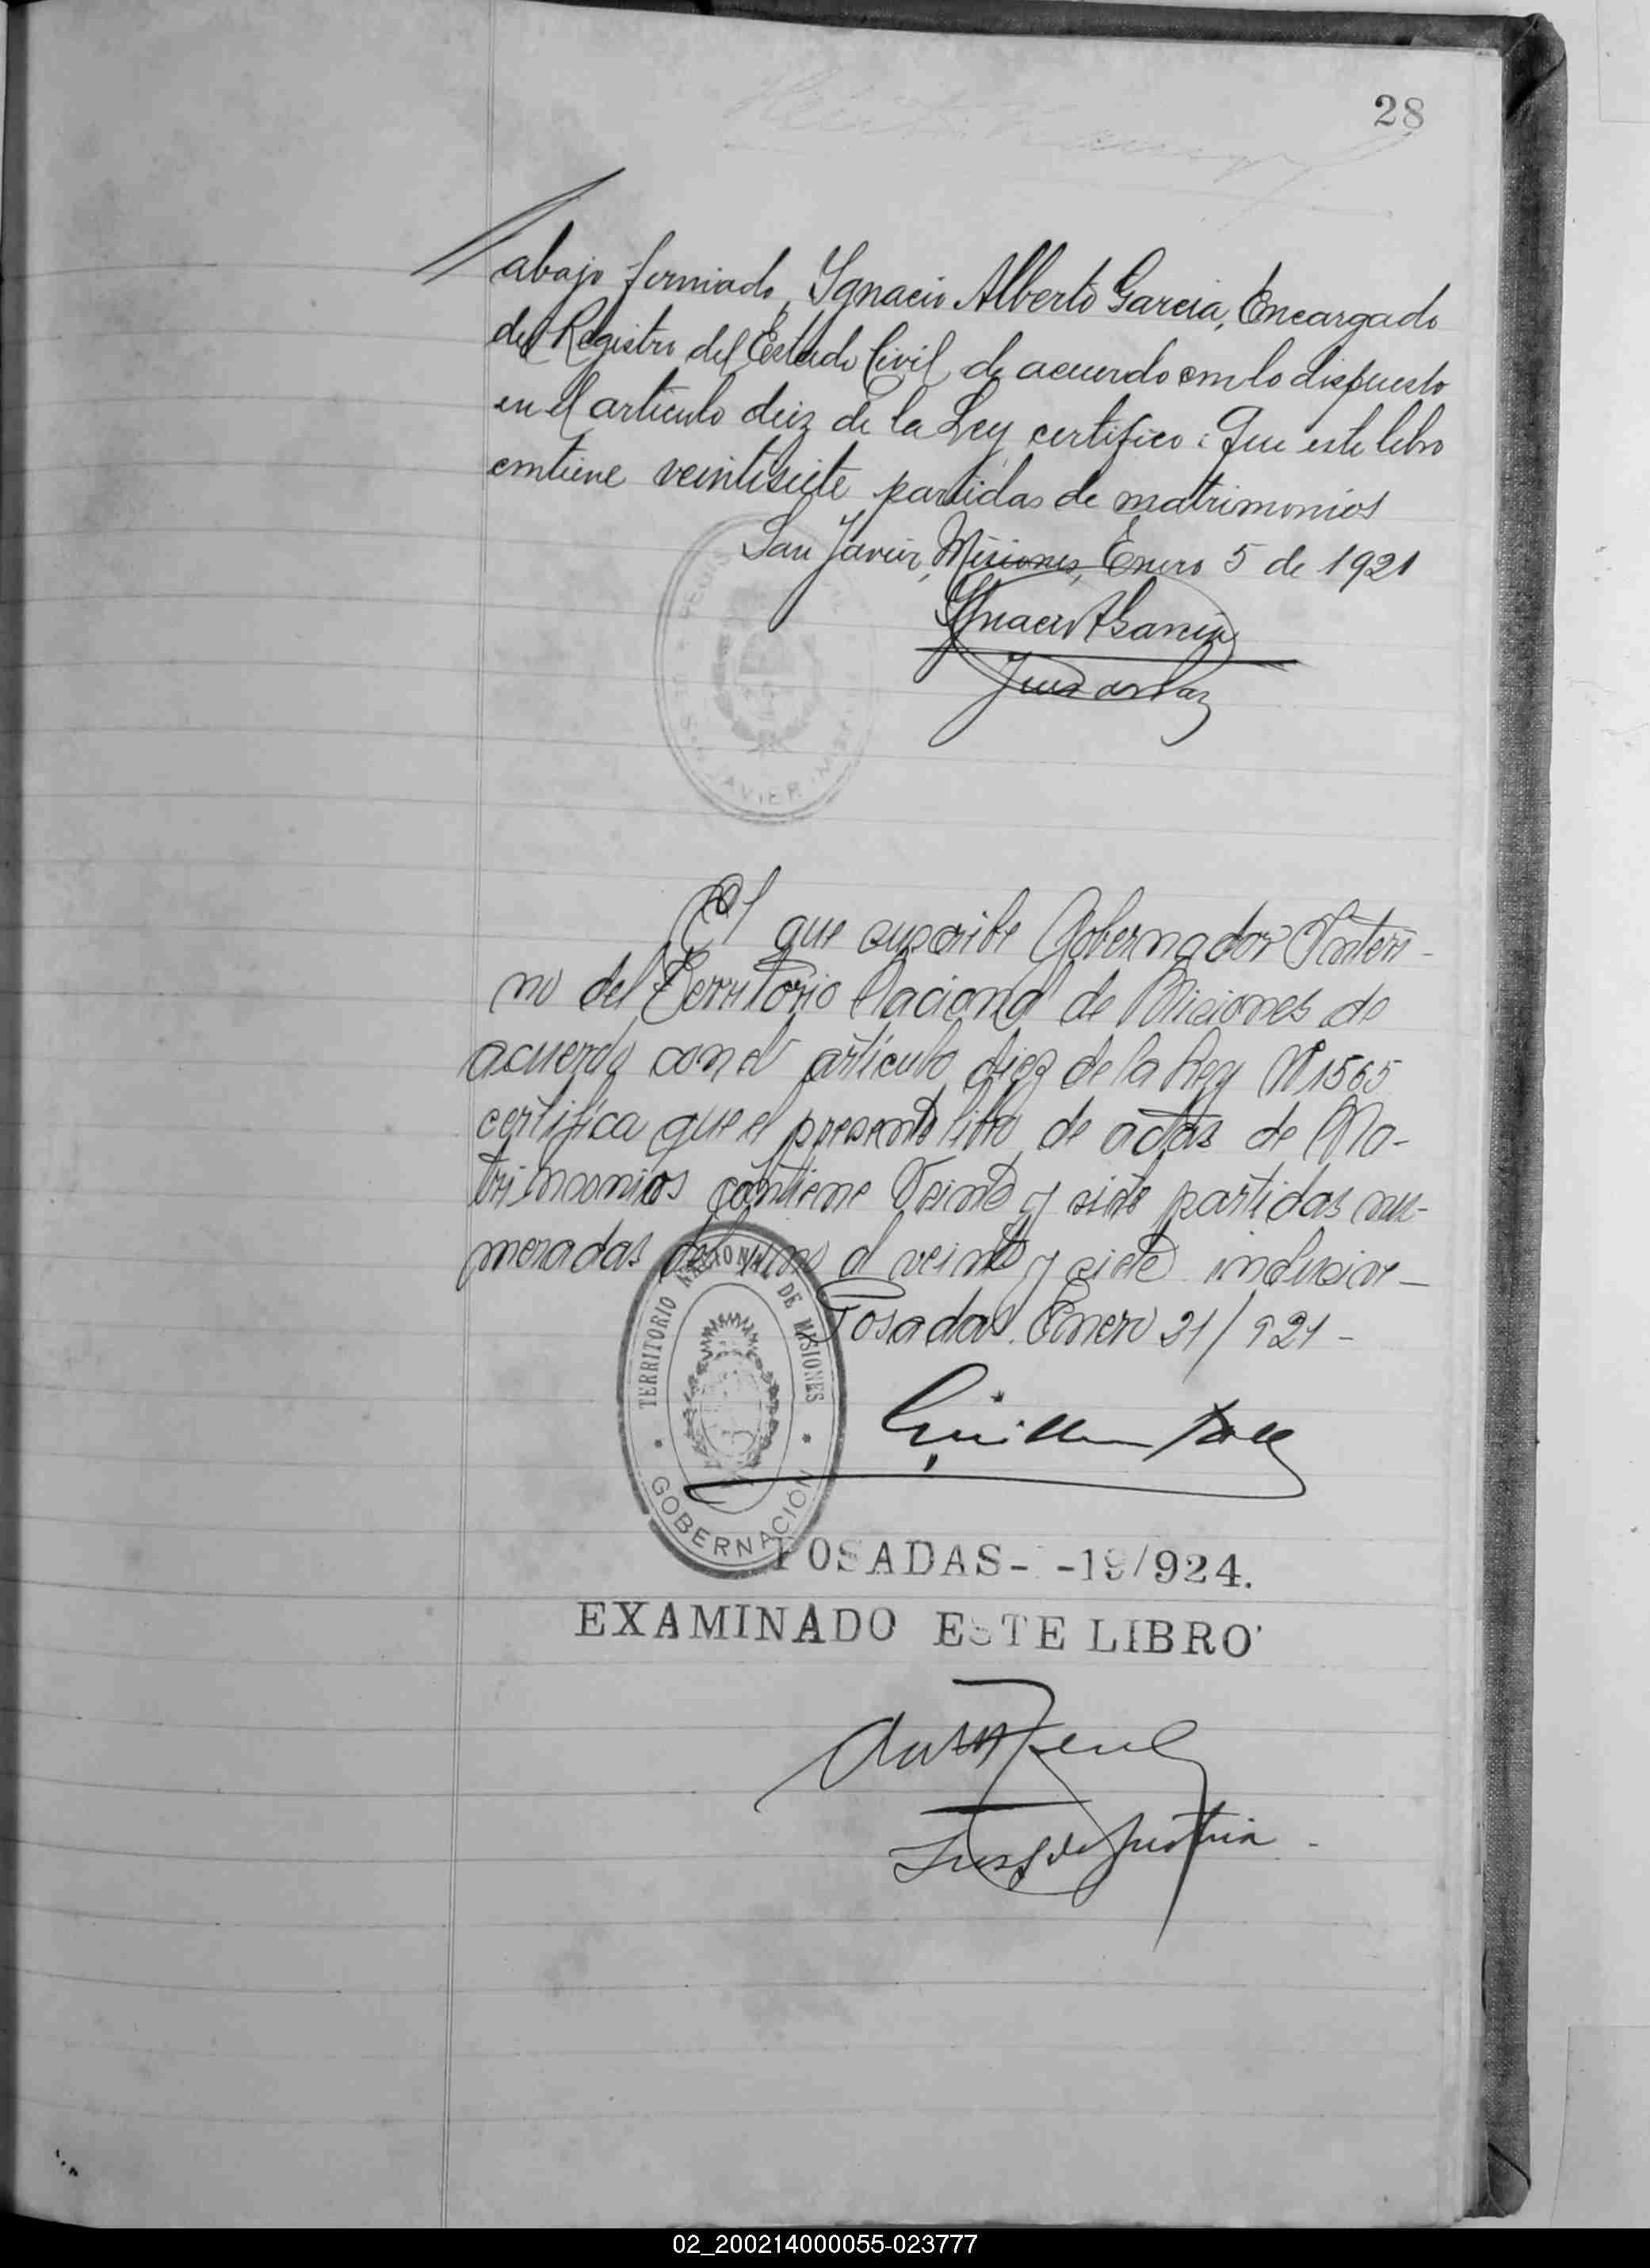 28
abajo firmado, Ygnacio Alberto Garcia, Encargado
del Registro del Estado Civil de acuerdo con lo dispuesto
en el articulo diez de la Ley certifico: Que este libro
contiene veintisiete partidas de matrimonios
San Javier, Misiones, Enero 5 de 1921
Ygnacio A Garcia
Juez de Paz
El que suscribe Gobernador Interi-
no del Territorio Nacional de Misiones de
acuerdo con el artículo diez de la Ley Nº 1565
certifica que el presente libro de actas de Ma-
trimonios contiene Veinte y siete partidas nu-
meradas del uno al veinte y siete inclusive-
Posadas. Enero 21/921-
TERRITORIO NACIONAL DE MISIONES
GOBERNACIÓN
POSADAS- -19/924.
EXAMINADO ESTE LIBRO
02_200214000055-023777